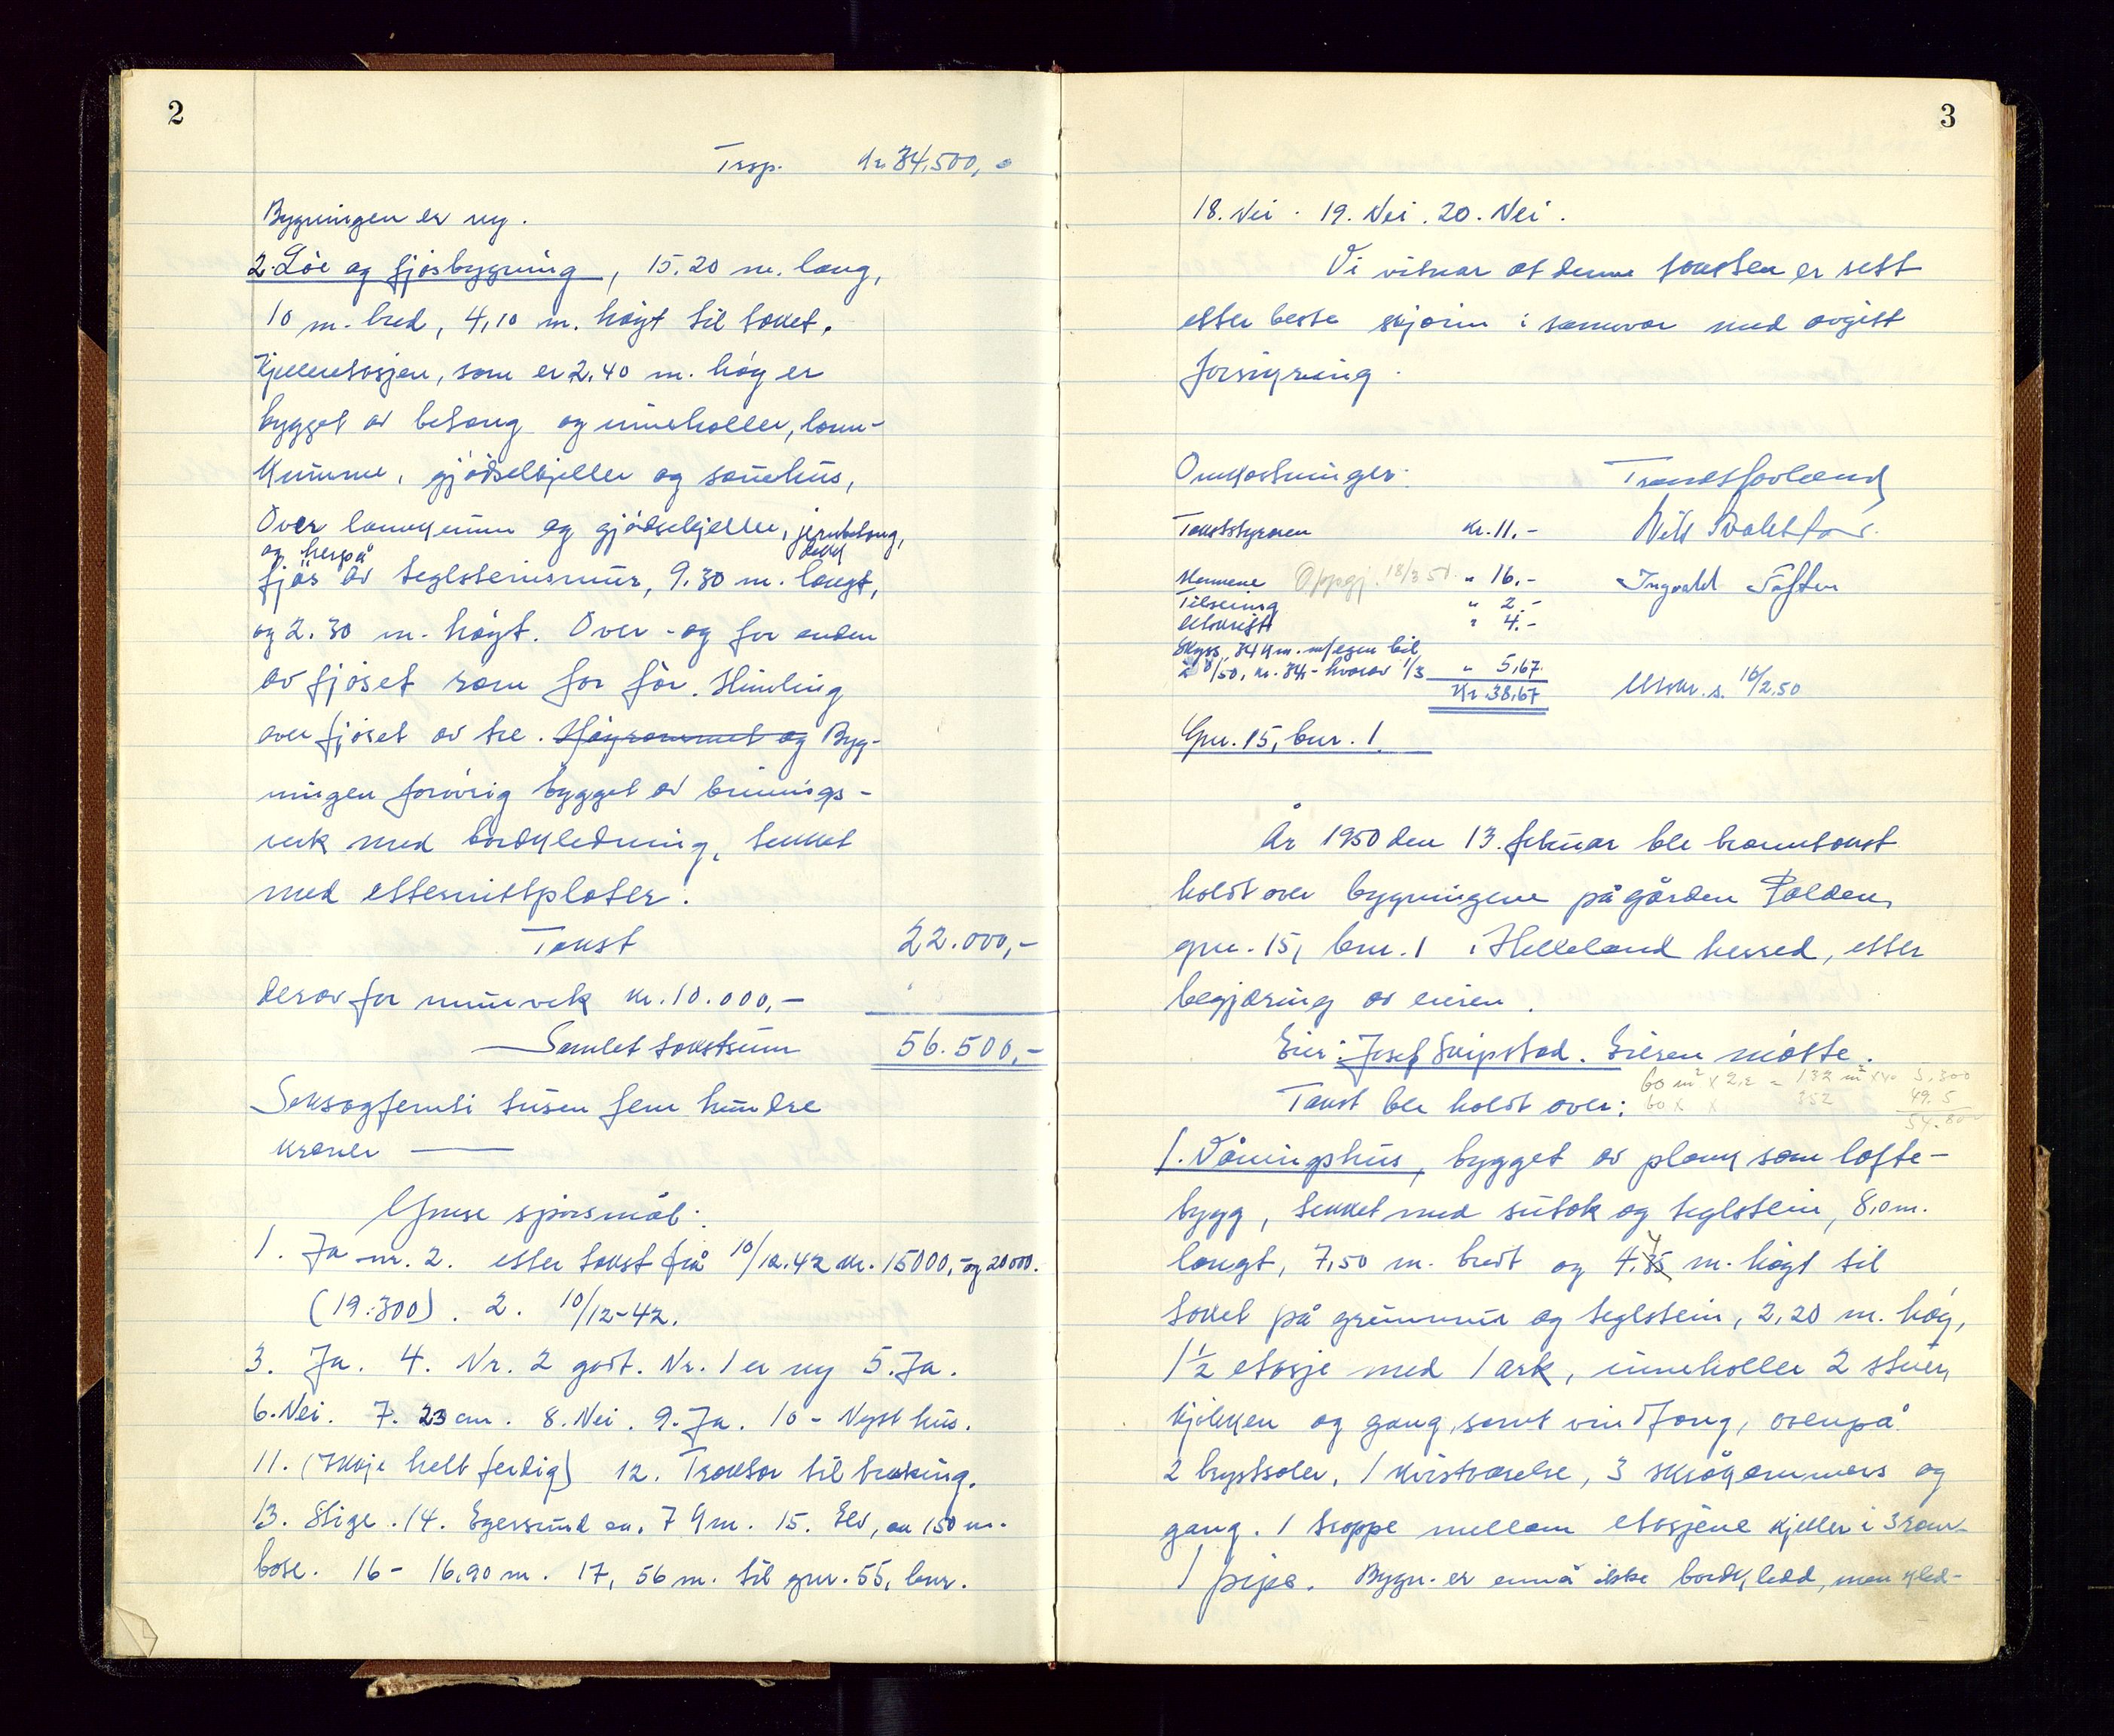 2
Trsp. Kr. 34.500,-
Bygningen er ny.
2. Löe og fjösbygning, 15.20 m. lang,
10 m. bred, 4,10 m. högt til taket.
Kjelleretasjen, som er 2.40 m. hög er
bygget av betong og inneholler, land-
kumme, gjödselkjeller og sauehus,
Over landkumm og gjödselkjeller, jernbetong,
og herpå dekk
fjös av teglsteinsmur, 9.30 m. langt,
og 2.30 m. högt. Over - og for enden
av fjöset rom for för. Himling
over fjöset av tre. Höyrommet og Byg-
ningen forövrig bygget av binnings-
verk med bordkledning, tekket
med etternittplater.
Takst 22.000,-
derav for murverk kr. 10.000,-
Samlet takstsum 56.500,-
Seksogfemti tusen fem hundre
kroner
Ymse spörsmål:
1. Ja nr. 2. etter takst frå 10/12.42 kr. 15000,- og 20000.
(19.300). 2. 10/12-42.
3. Ja. 4. Nr. 2 godt. Nr. 1 er ny 5. Ja.
6. Nei. 7. 23 cm. 8. Nei. 9. Ja. 10 - Nytt hus.
11. (Ikkje helt ferdig) 12. Traktor til treking.
13. Stige. 14. Egersund ca. 7 km. 15. Elv, ca 150 m.
bose. 16 - 16.90 m. 17, 56 m. til gnr. 55, bnr.
3
18. Nei. 19. Nei. 20. Nei.
Vi vitnar at denne taksten er sett
etter beste skjönn i samsvar med avgitt
forsikring.
Omkostninger:
Takststyraren kr. 11.-
Mennene Oppgj. 18/3 51. " 16.-
Tilseting " 2.-
Utskrift " 4.-
Skyss, 34 km. m/egen bil
kr. 34,- hvorav 1/3 " 5,67.
Kr. 38,67
Ingvald Tofter
Utskr. s. 16/2.50
Gnr. 15, bnr. 1.
År 1950 den 13. februar ble branntakst
holdt over bygningene på gården Polden,
gnr. 15, bnr. 1 i Helleland herred, etter
begjæring av eieren.
Eier: Josef Skipstad. Eieren mötte.
60 m² x 2,2 = 132 m² x 40 5,300
Takst ble holdt over:
60 x x 352 49.5
54.800
1. Våningshus, bygget av plank som lofte-
bygg, tekket med sutak og teglstein, 8,0 m.
langt, 7,50 m. bredt og 4.35 m. högt til
taket på grunnmur og teglstein, 2,20 m. hög,
1½ etasje med 1 ark, inneholler 2 stuer,
kjökken og gang, samt vindfang, ovenpå
2 brystsaler, 1 kvistværelse, 3 skråkammers og
gang. 1 trappe mellom etasjene kjeller i 3 rom
1 pipe. Bygn. er ennå ikke bordkledd, men kled-